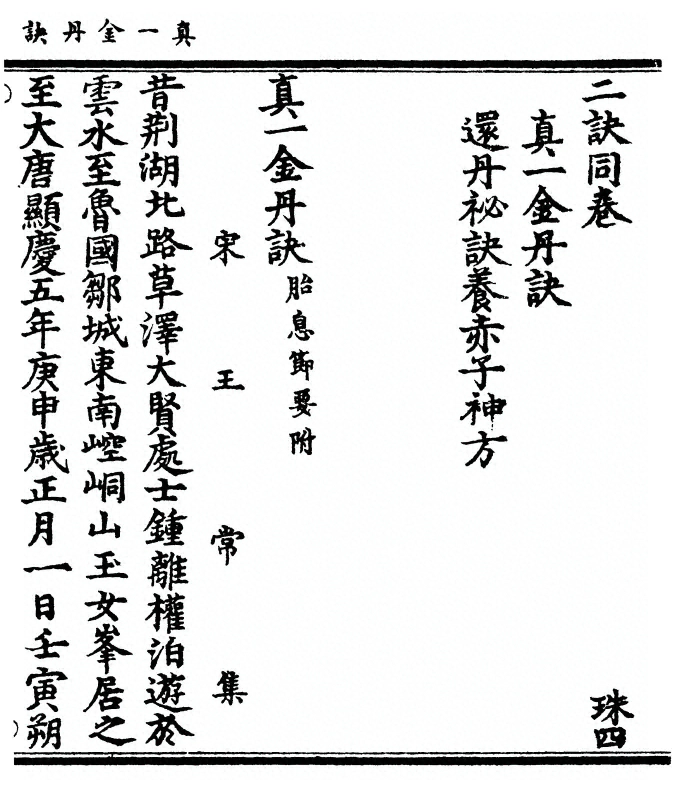 真一金丹訣
二訣同卷 珠四
真一金丹訣
還丹祕訣養赤子神方
真一金丹訣 胎息節要附
宋王常集
昔荆湖北路草澤大賢處士鍾離權泊遊於
雲水至魯國鄒城東南崆峒山玉女峯居之
至大唐顯慶五年庚申歲正月一日壬寅朔